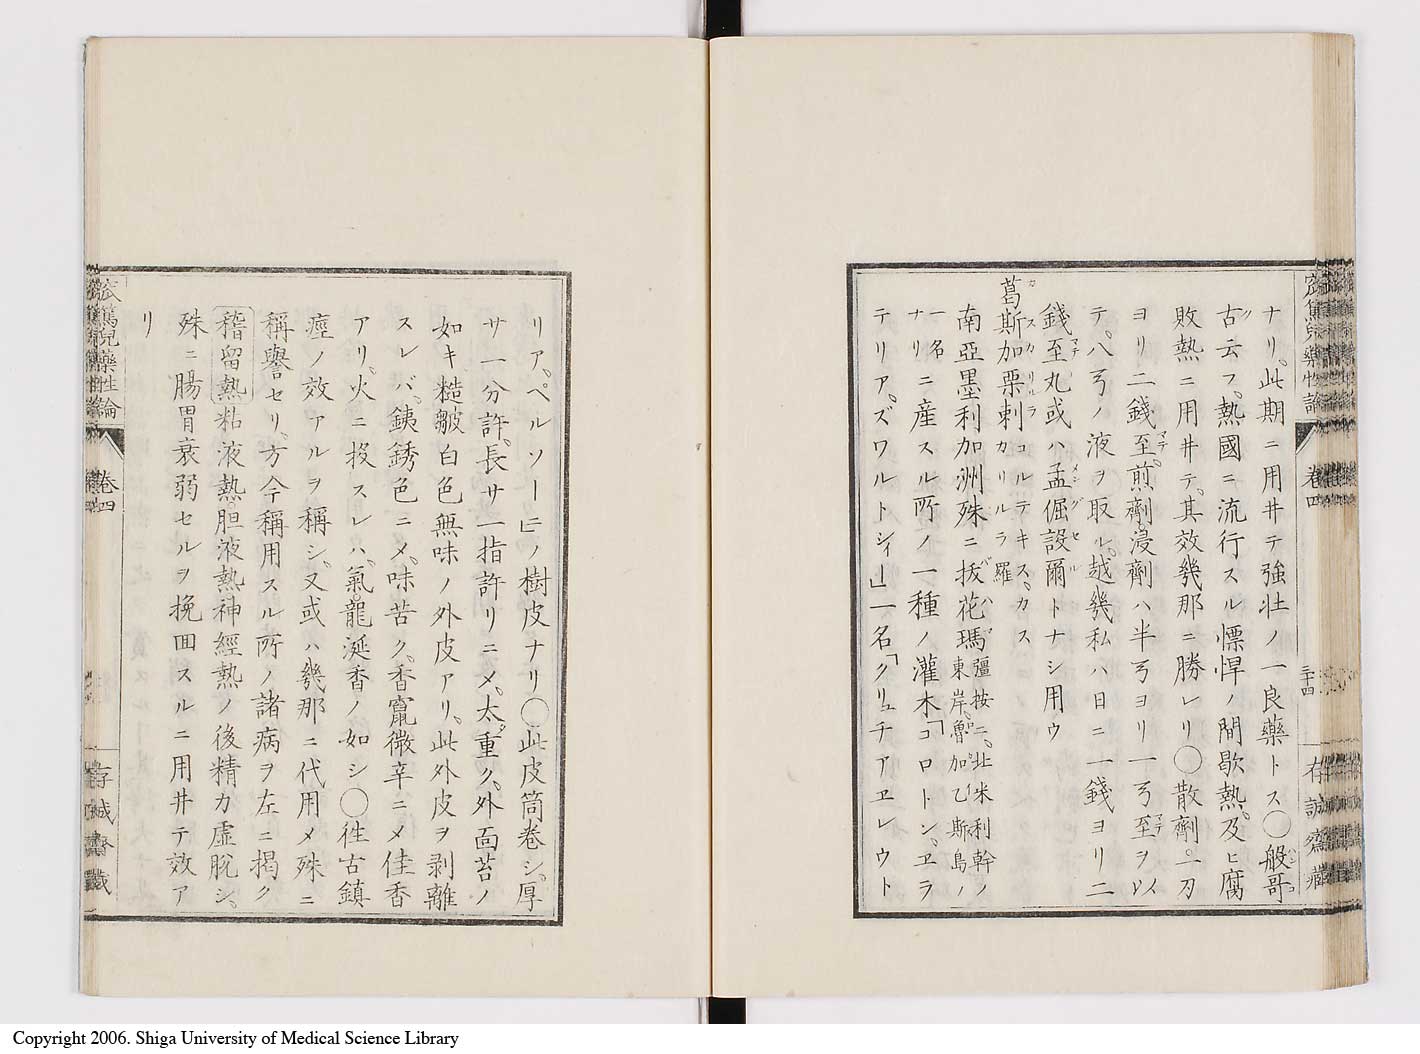 ナリ、此期ニ用井テ強壮ノ一良薬トス〇般哥
古云フ、熱國ニ流行スル慓悍ノ間歇熱、及ヒ腐
敗熱ニ用井テ、其效幾那ニ勝レリ〇散劑一刃
ヨリ二錢至、煎劑、浸劑ハ半弓ヨリ一弓至ヲ以
テ、八弓ノ液ヲ取ル、越幾私ハ日ニ一錢ヨリ二
錢至丸或ハ孟倔設爾トナシ用ウ
葛斯加栗刺 コルテキス、カスカリルラ羅
南亞墨利加洲殊ニ抜花瑪 彊按ニ、北米利幹ノ東岸、魯加乙斯島ノ
一名ナリニ産スル所ノ一種ノ灌木「コロトン、ヱラ
テリア、ズワルトシイ」一名「クリュチアヱレウト
リア、ペルソーニ」ノ樹皮ナリ〇此皮筒卷シ、厚
サ一分許、長サ一指許リニメ、太重ク、外面苔ノ
如キ糙皺白色無味ノ外皮アリ、此外皮ヲ剥離
スレバ、銕銹色ニメ、味苦ク、香竄微辛ニメ佳香
アリ、火ニ投スレハ、氣龍涎香ノ如シ〇徃古鎮
痙ノ效アルヲ稱シ、又或ハ幾那ニ代用メ殊ニ
稱譽セリ、方今稱用スル所ノ諸病ヲ左ニ掲ク
稽留熱粘液熱。胆液熱神經熱ノ後精力虚脱シ、
殊ニ腸胃衰弱セルヲ挽回スルニ用井テ效ア
リ
卷四
三十四
存誠齋藏
卷四
存誠齋藏
Copyright 2006. Shiga University of Medical Science Library